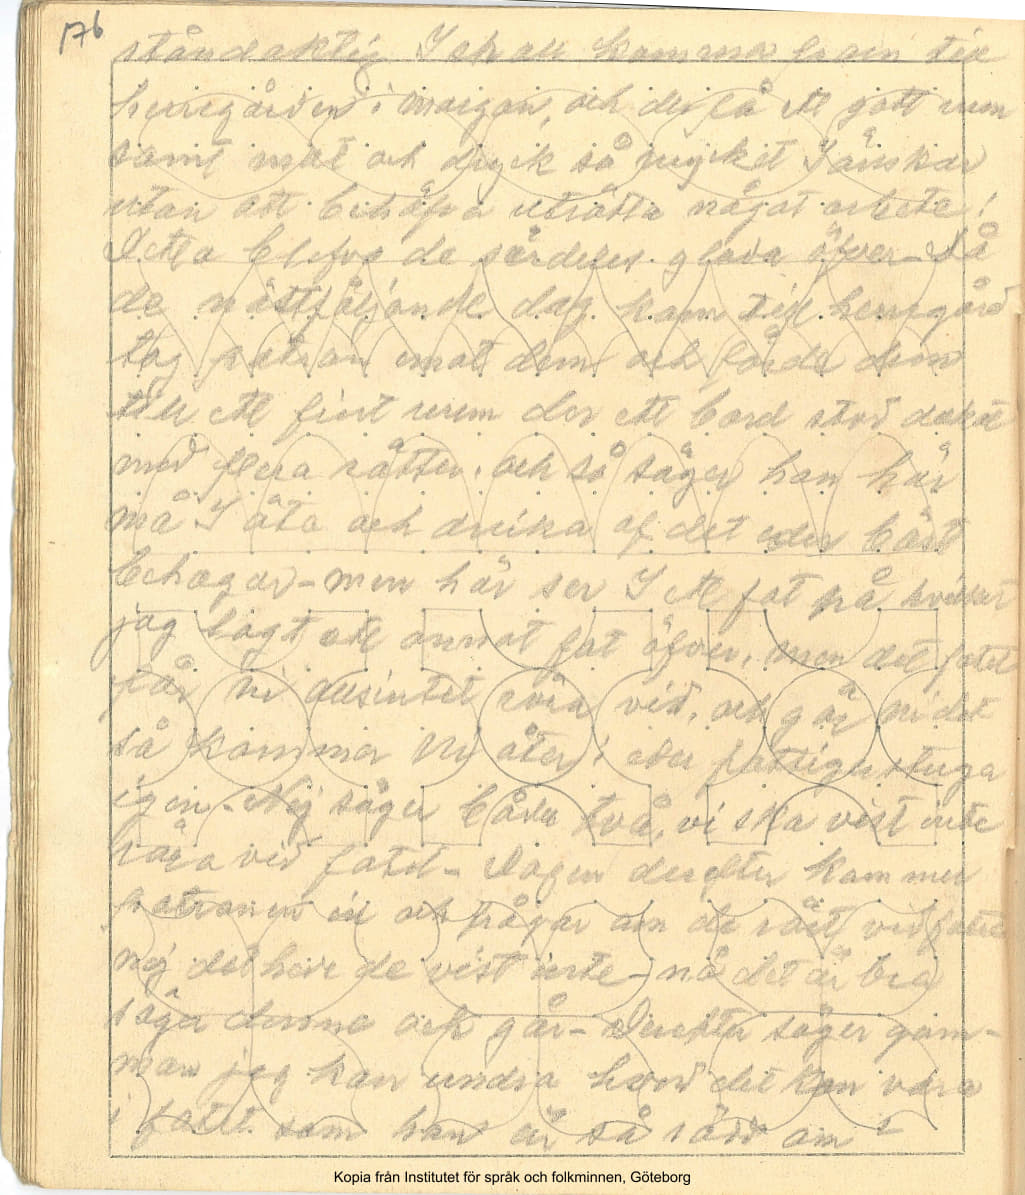 176
ståndaktig I skall komma fram till
herregården i morgon, och der få ett gott rum
samt mat och dryck så mycket I önskar
utan att behöfva uträtta något arbete!
Detta blefvo de särdeles glada öfver – Då
de nästföljande dag kom till herregård
tog patron emot dem och förde dem
till ett fint rum der ett bord stod dukat
med flera rätter, och så säger han här
må I äta och dricka af det eder bäst
behagar – men här ser I ett fat på hvilket
jag lagt ett annat fat öfver, men det fatet
får ni alsintet röra vid, och gör ni det
så kommer Ni åter i eder fattigustuga
igen – Nej säger båda två, vi ska vist inte
röra vid fatet – Dagen derefter kommer
patronen in och frågar om de rört vid fatet
nej det have de vist inte – nå det är bra
säger denne och går – Derefter säger gum-
man jag kan undra hvad det kan vara
i fatet som han är så rädd om
Kopia från Institutet för språk och folkminnen, Göteborg